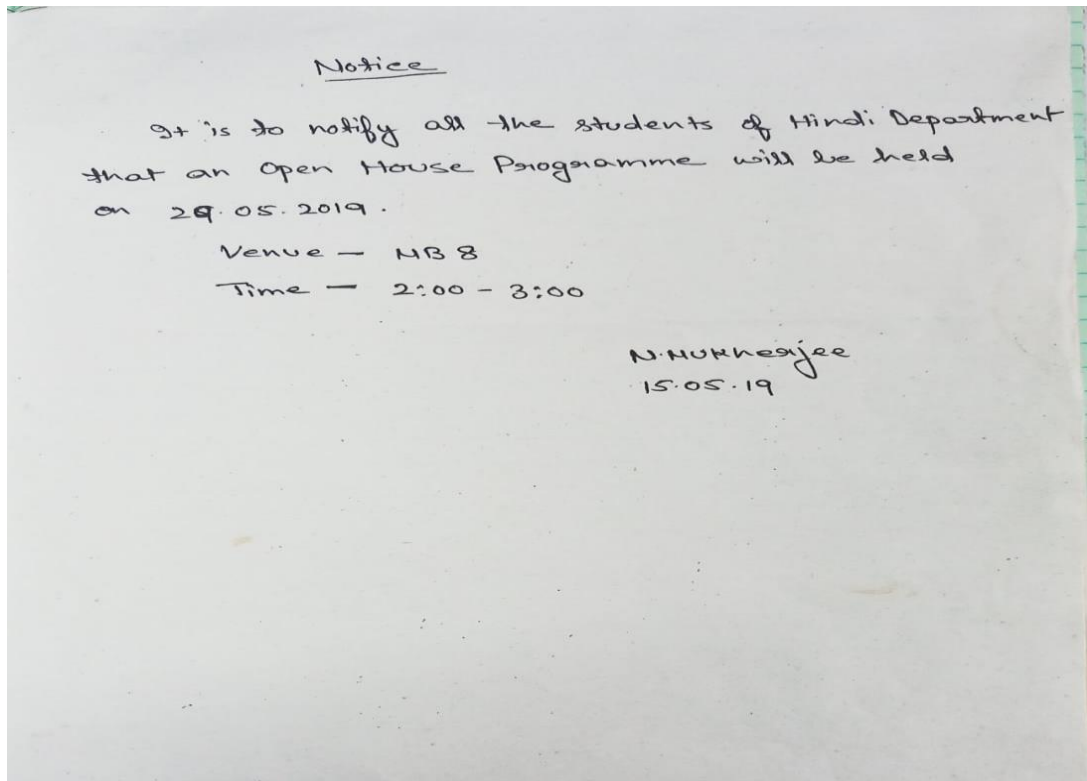 Notice
It is to notify all the students of Hindi Department
that an Open House Programme will be held
on 29.05.2019.
Venue — NB 8
Time — 2:00 - 3:00
N. Mukherjee
15.05.19